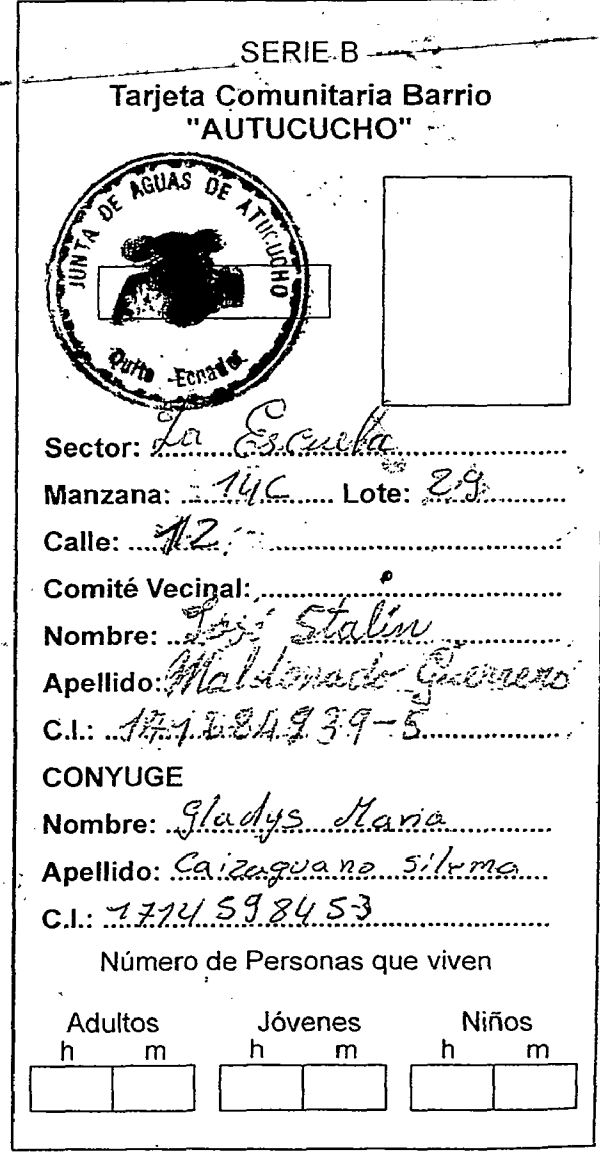 SERIE B
Tarjeta Comunitaria Barrio
"AUTUCUCHO"
JUNTA DE AGUAS DE ATUCUCHO
Quito - Ecuador
Sector: La Escuela
Manzana: 14C Lote: 29
Calle: 12
Comité Vecinal:
Nombre: José Stalin
Apellido: Maldonado Guerrero
C.I.: 939-5
CONYUGE
Nombre: Gladys Maria
Apellido: Caizaguano
C.I.: 1714598453
Número de Personas que viven
Adultos Jóvenes Niños
h m h m h m